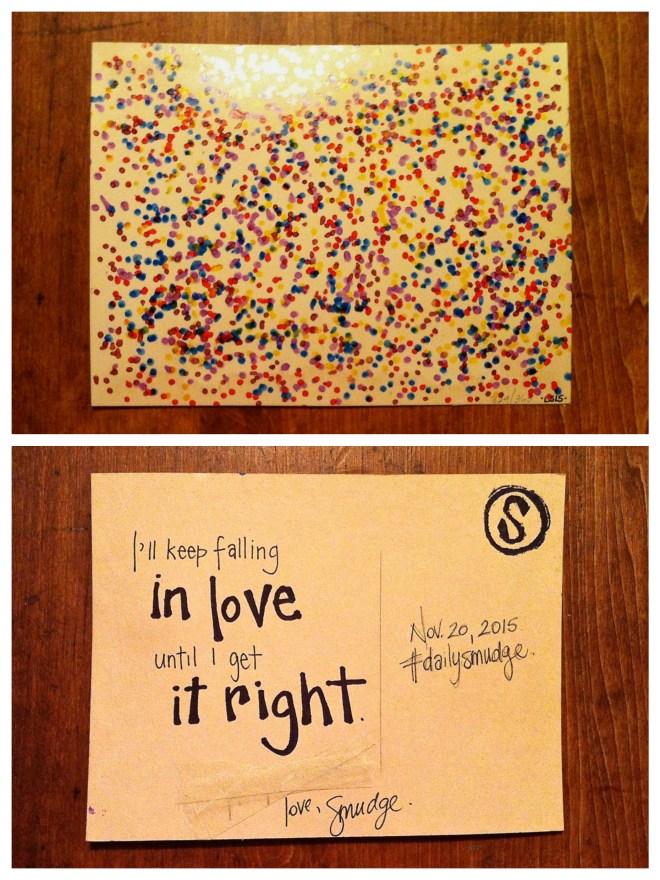 ·LOLS·
S
I'll keep falling
in love
until I get
it right.
Nov. 20, 2015
#dailysmudge.
love, Smudge.